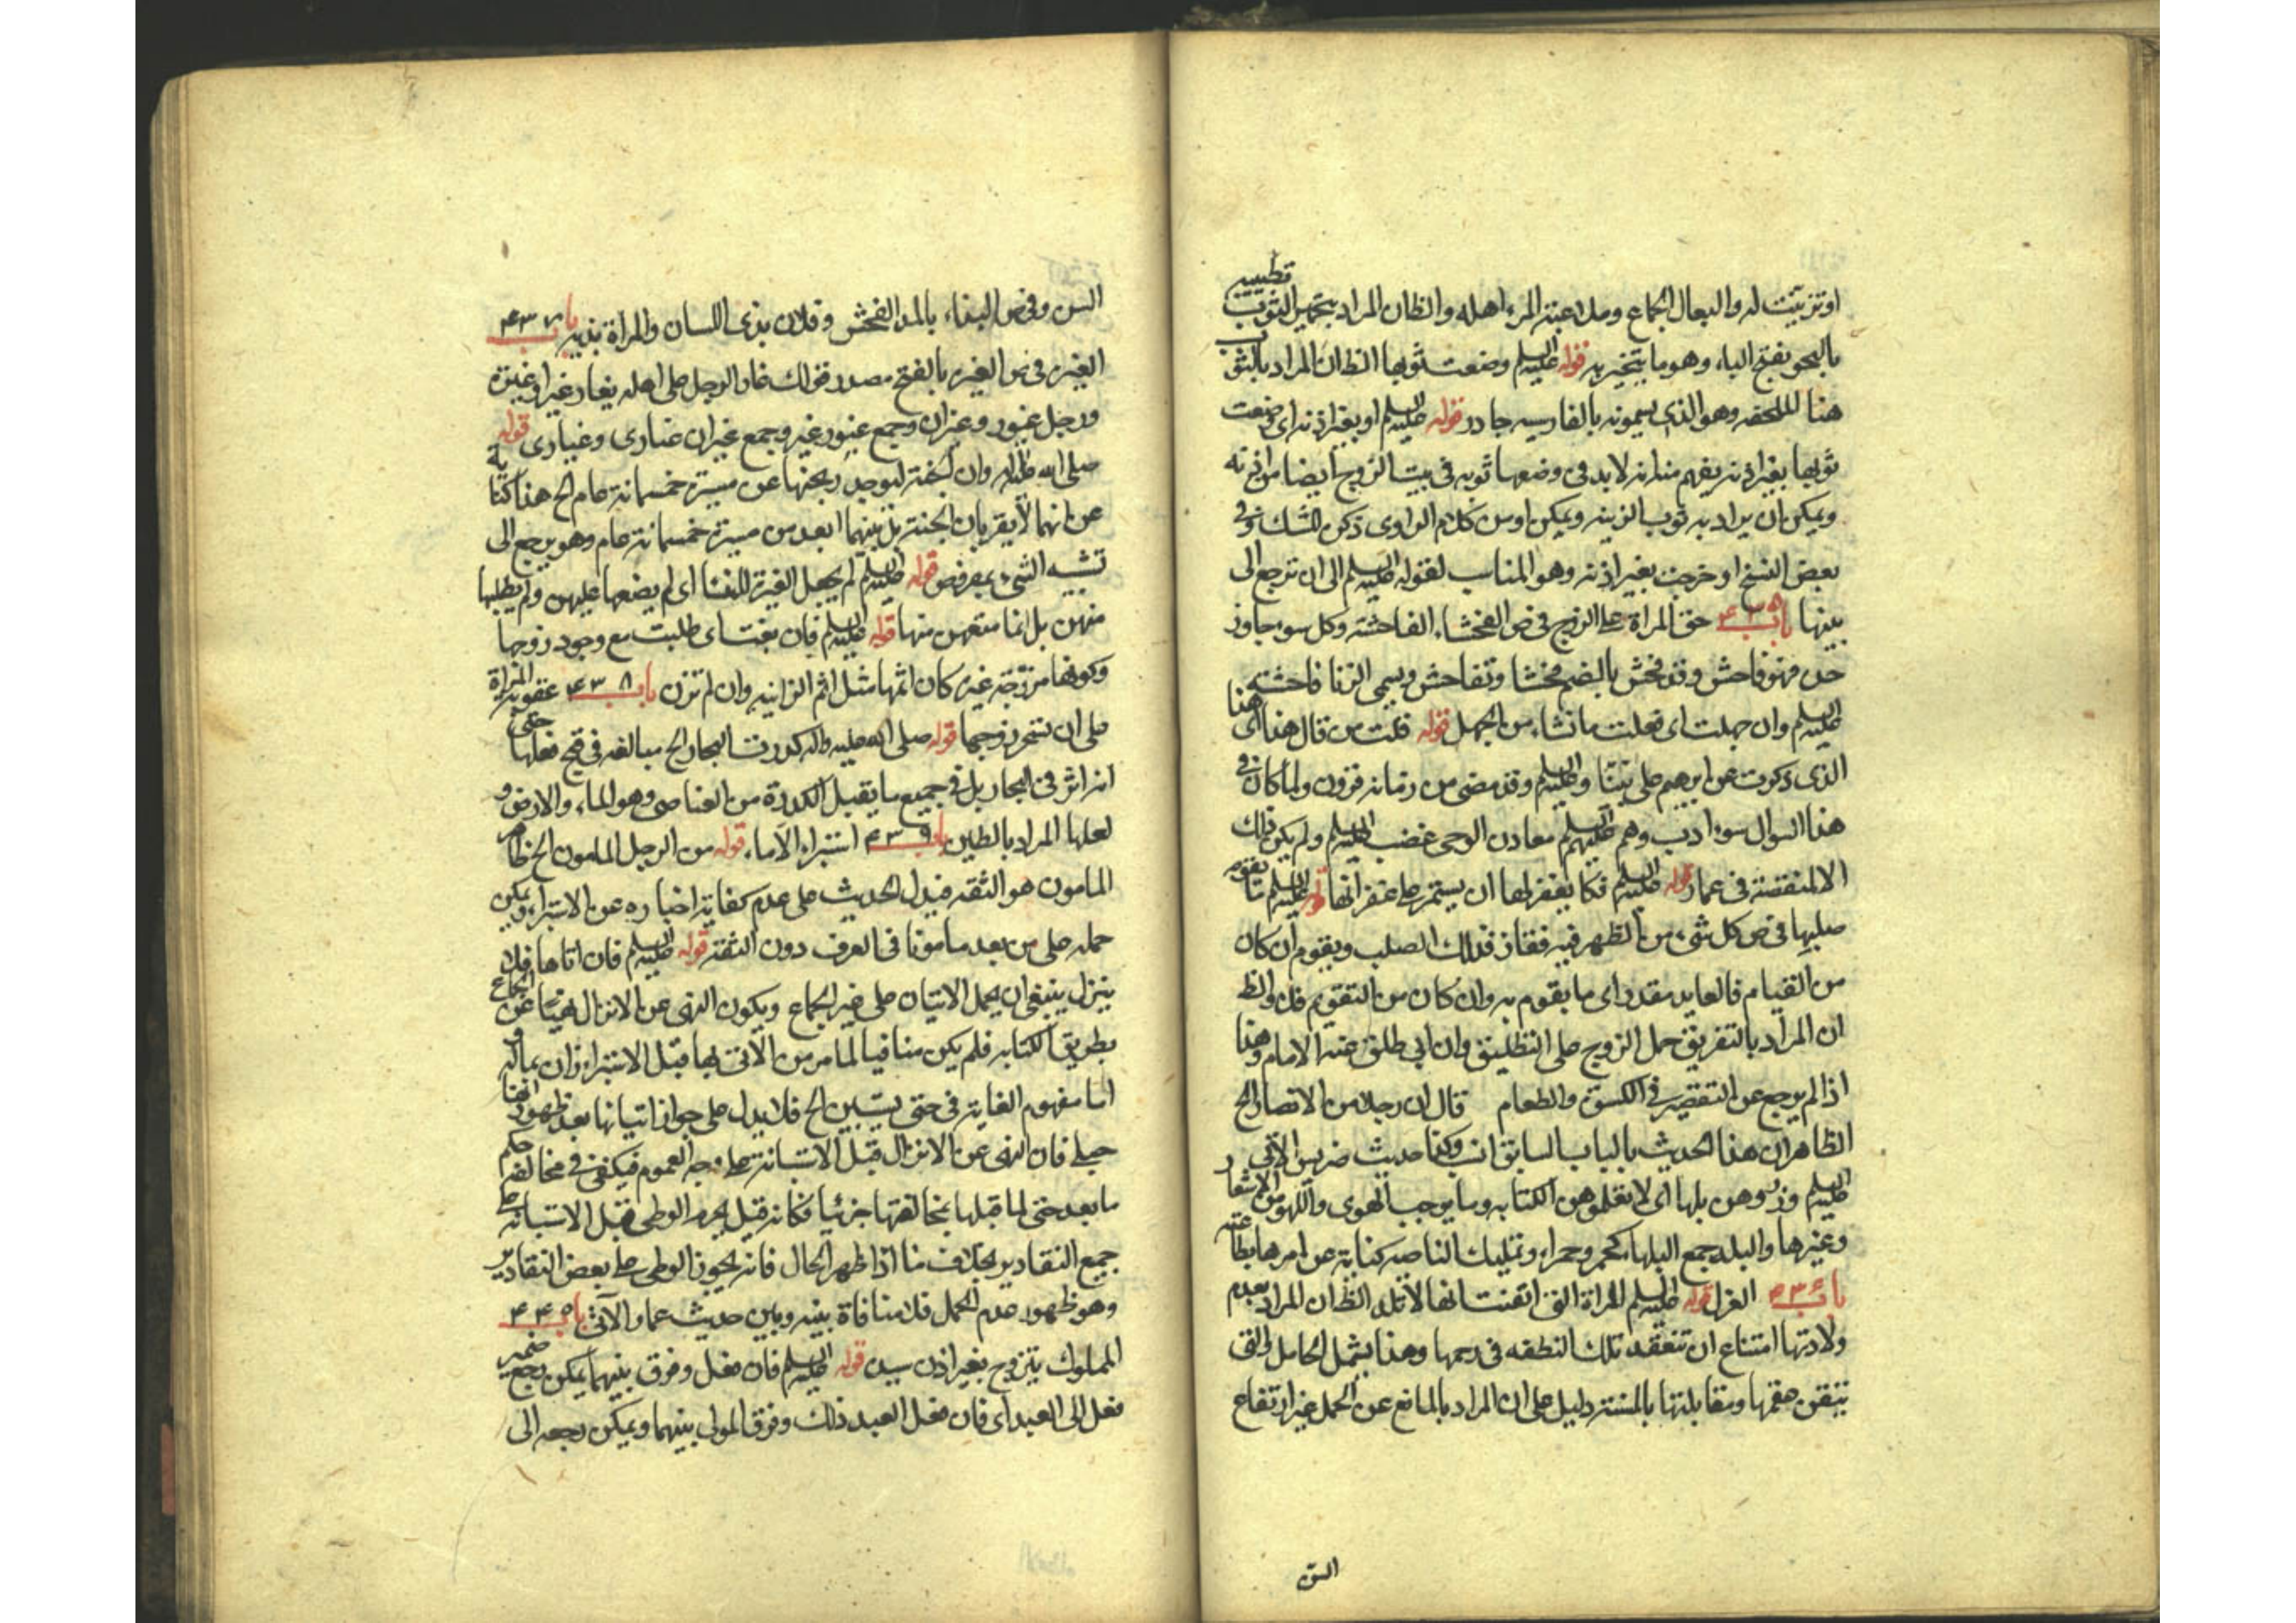 او تزينت له والبعال الجماع وملاعبة المرء اهله والظان المراد بتجمير الثوب تطييبه
بالبخور بفتح الباء وهو ما يتبخر به قوله عليه السلم وضعت ثوبها الظان المراد بالثوب
هنا الملحفه وهو الذي يسمونه بالفارسيه جادر قوله عليه السلم او بغير اذنه اى وضعت
ثوبها بغير اذنه يفهم منه انه لا بد فى وضعها ثوبه فى بيت الزوج ايضا من اذنه
ويمكن ان يراد به ثوب الزينه ويمكن او من كلام الراوى ذكره للشك وفى
بعض النسخ او خرجت بغير اذنه وهو المناسب لقوله عليه السلم الى ان ترجع الى
بيتها باب ۴۳۵ حق المراة على الزوج فى ض الفحشاء الفاحشة وكل سوء جاوز
حده فهو فاحش وقد فحش بالضم فحشا وتفاحش ويسمى الزنا فاحشة
عليه السلم وان جهلت اى فعلت ما نشاء من الجهل قوله قلت من قال هذا اى هذا
الذى ذكرت عن ابرهيم على نبينا وعليه السلم وقد مضى من زمانه قرون ولما كان فى
هذا السوال سوء ادب وهم عليهم السلم معادن الوحى غضب عليه السلم ولم يكن ذلك
الا لمنقصة فى عمار قوله عليه السلم فكا يغفر لها ان يستمر على غفرانها قوله عليه السلم ما يقوم
صلبها فى ض كل شىء من الظهر فيه فقار فذلك الصلب ويقوم ان كان
من القيام فالعايد مقدر اى ما يقوم به وان كان من التقويم فلا والظ
ان المراد بالتفريق حمل الزوج على التطليق وان ابى طلق عنه الامام وهذا
اذا لم يرجع عن التقصير فى الكسوة والطعام قال ان رجلا من الانصار الخ
الظاهر ان هذا الحديث بالباب السابق انسب وكذا حديث ضريس الاتى
عليه السلم وزوهن بلها اى لا تعلموهن الكتابه وما يوجب الهوى واللهو من الاشعار
وغيرها والبله جمع البلهاء كحمر وحمراء وتمليك الناصيه كناية عن امرها بطاعته
باب ۴۳۶ العزل قوله عليه السلم المراة التى ايقنت انها لا تلد الظ ان المراد بعدم
ولادتها امتناع ان تنعقد تلك النطفه فى رحمها وهذا يشمل الحامل والتى
تيقن عقمها ومقابلتها بالمسنة دليل على ان المراد بالمانع عن الحمل غير ارتفاع
السن
السن وفى ض البذاء بالمد الفحش وفلان بذى اللسان والمراة بذيه باب ۴۳۷
الغيره فى ض الغيره بالفتح مصدر قولك غار الرجل على اهله يغار غيرا وغيرة
ورجل غيور وغيران وجمع غيور غير وجمع غيران غيارى وغيارى قوله
صلى الله عليه واله وان الجنة ليوجد ريحها عن مسيرة خمسمائة عام الخ هذا كناية
عن انهما لا يقربان الجنة بل بينهما ابعد من مسيرة خمسمائة عام وهو يرجع الى
تشبيه الشىء بمفروض قوله عليه السلم لم يجعل الغيرة للنساء اى لم يضعها عليهن ولم يطلبها
منهن بل انما منعهن منها قوله عليه السلم فان بغت اى طلبت مع وجود زوجها
وكونها مزوجه غيره كان اثمها مثل اثم الزانيه وان لم تزن باب ۴۳۸ عقوبة المراة
على ان تسحر زوجها قوله صلى الله عليه واله كدرت البحار الخ مبالغه فى قبح فعلها حتى
انه اثر فى البحار بل فى جميع ما يقبل الكدورة من العناصر وهو الماء والارض و
لعلها المراد بالطين باب ۴۳۹ استبراء الاماء قوله من الرجل المامون الخ ظاهر
المامون هو الثقه فيدل الحديث على عدم كفاية اخباره عن الاستبراء ويمكن
حمله على من يعد مامونا فى العرف دون الثقة قوله عليه السلم فان اتاها فلا
ينزل ينبغى ان يحمل الاتيان على غير الجماع ويكون النهى عن الانزال نهيا عن الجماع
بطريق الكتابه فلم يكن منافيا لما مر من الاتى بها قبل الاستبراء زان بماله و
اما مفهوم الغاية فى حتى يستبين الخ فلا يدل على جواز اتيانها بعد ظهور انها
حبلى فان النهى عن الانزال قبل الاستبانة على وجه العموم فيكفى فى مخالفة حكم
ما بعد حتى لما قبلها مخالفتها جزئيا فكانه قيل يحرم الوطى قبل الاستبانه على
جميع التقادير بخلاف ما اذا ظهر الحال فانه يجوز الوطى على بعض التقادير
وهو ظهور عدم الحمل فلا منافاة بينه وبين حديث عمار الآتى باب ۴۴۰
المملوك يتزوج بغير اذن سيده قوله عليه السلم فان فعل وفرق بينهما يمكن رجع ضمير
فعل الى العبد اى فان فعل العبد ذلك وفرق المولى بينهما ويمكن رجعه الى